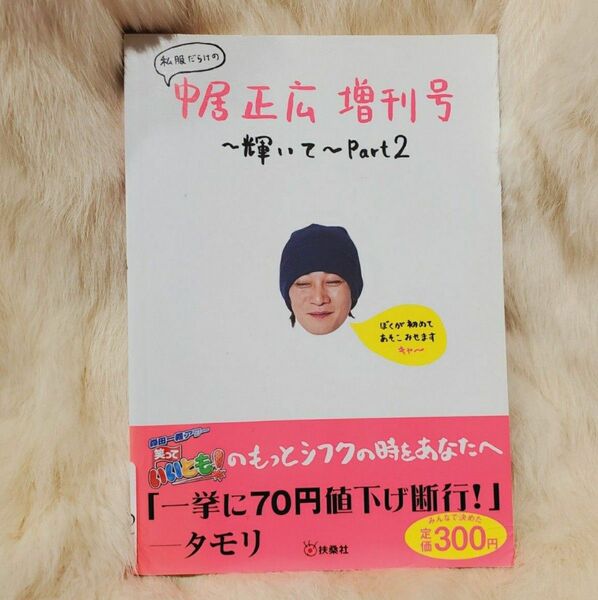 私服だらけの
中居正広増刊号
～輝いて～Part2
ぼくが初めて
あそこみせます
キャ～
森田一義アワー
笑って
いいとも!
のもっとシフクの時をあなたへ
「一挙に70円値下げ断行!」
―タモリ
扶桑社
みんなで決めた
定価300円